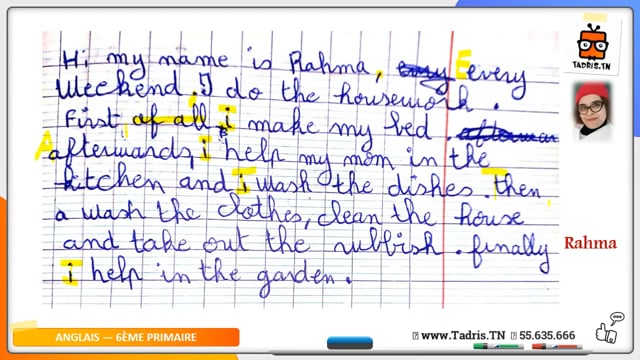 Hi my name is Rahma, Eevery
Weekend. I do the housework.
First of all i make my bed.
Aafterwards, i help my mom in the
kitchen and i wash the dishes. Then,
a wash the clothes, clean the house
and take out the rubbish. finally
i help in the garden.
Rahma
TADRIS.TN
ANGLAIS — 6ÈME PRIMAIRE
www.Tadris.TN 55.635.666